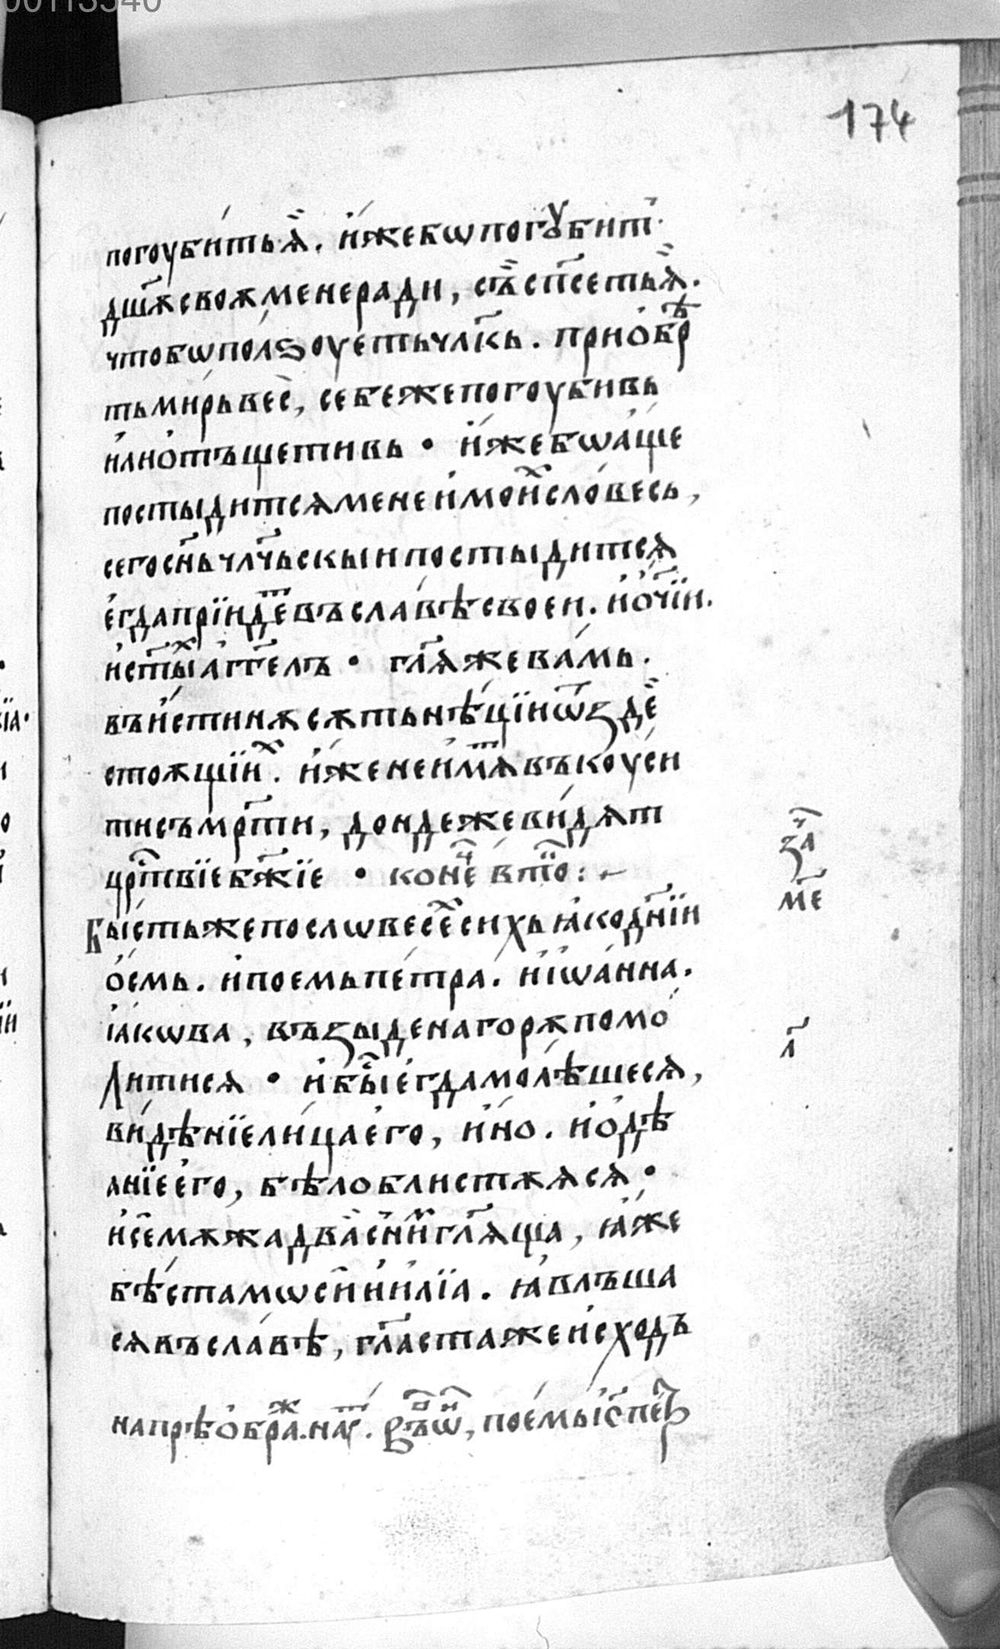 00113540
174
погоубитьѧ̀. и҆́жебѡпогꙋбит҇
дш҃ѫсвоѫменеради, съ̀сп҃сетьѧ̀.
чтобѡпол́ѕоуетьчл҃кь. приѡ҆брѣ
тьми́рьвес̀, себежепогоубивь
и҆лио҆тъщетивь • и҆́жебѡа҆́ще
постыдитсѧменеи҆мои҆хсло́весь,
сегосн҃ьчл҃чьскыипостыдитсѧ
е҆гдапрїидет҇въсла́вѣсвоеи. и҆ѻ҆ч҃їи.
и҆ст҃ыха҆гг҃елъ • гл҃ѧжева́мь.
въи҆стинѫсѫтьнѣ́цїиѿздѐ
стоѫщїих. и҆́женеи҆мѫт҇въкоуси
тисъмр҃ти, дондежеви́дѧт
црⷭ҇твїебж҃їе • коне҆ч в́тѡ҇ :~
Бы́стьжепослѡвесе҆хсихьꙗкодн҃їи
о҆́смь. и҆поемьпе́тра. и҆і҆ѡа́нна.
і҆а́кѡва, въꙁыденагорѫпомо
литисѧ • и҆бы҇е҆гдамолѣ́шесѧ,
ви́дѣнїели́цаего, и҆́но. и҆ѻ҆дѣ
анїеего, бѣлоблистѫѧсѧ •
и҆се҃мѫжадва̀сни́мгл҃ѧща, ꙗ҆́же
бѣ́стамѡси҆и҆и҆лїа. ꙗ҆влъша
сѧвъсла́вѣ, гл҃астажеи҆сходъ
напрѣѻ҆браж.нау҇т. въѡ҆н, пое́мьі҆с҃пет҇р
за҇ч
м҃е
л҃